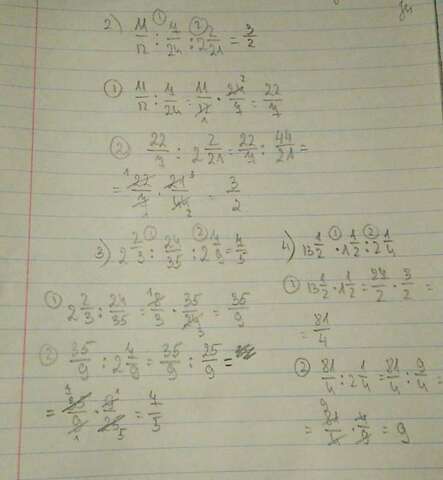 2) 11/12 : 7/24 : 2 2/21 = 3/2
① 11/12 : 7/24 = 11/12 · 24/7 = 22/7
② 22/7 : 2 2/21 = 22/7 : 44/21 =
= 22/7 · 21/44 = 3/2
3) 2 2/3 : 24/35 : 2 7/9 = 7/5
① 2 2/3 : 24/35 = 8/3 · 35/24 = 35/9
② 35/9 : 2 7/9 = 35/9 : 25/9 =
= 35/9 · 9/25 = 7/5
4) 13 1/2 · 1 1/2 : 2 1/4
① 13 1/2 · 1 1/2 = 27/2 · 3/2 =
= 81/4
② 81/4 : 2 1/4 = 81/4 : 9/4 =
= 81/4 · 4/9 = 9